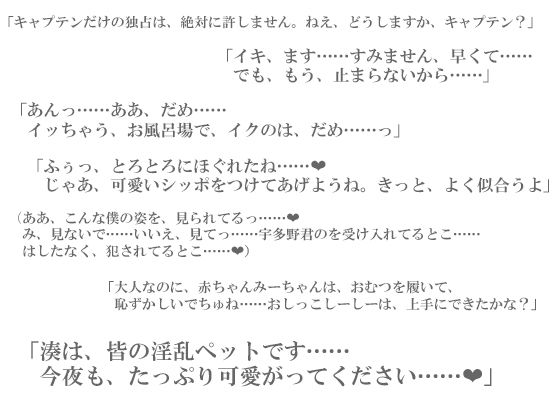 「キャプテンだけの独占は、絶対に許しません。ねえ、どうしますか、キャプテン？」
「イキ、ます……すみません、早くて……
でも、もう、止まらないから……」
「あんっ……ああ、だめ……
イッちゃう、お風呂場で、イクのは、だめ……っ」
「ふぅっ、とろとろにほぐれたね……❤
じゃあ、可愛いシッポをつけてあげようね。きっと、よく似合うよ」
（ああ、こんな僕の姿を、見られてるっ……❤
み、見ないで……いいえ、見てっ……宇多野君のを受け入れてるとこ……
はしたなく、犯されてるとこ……❤）
「大人なのに、赤ちゃんみーちゃんは、おむつを履いて、
恥ずかしいでちゅね……おしっこしーしーは、上手にできたかな？」
「湊は、皆の淫乱ペットです……
今夜も、たっぷり可愛がってください……❤」